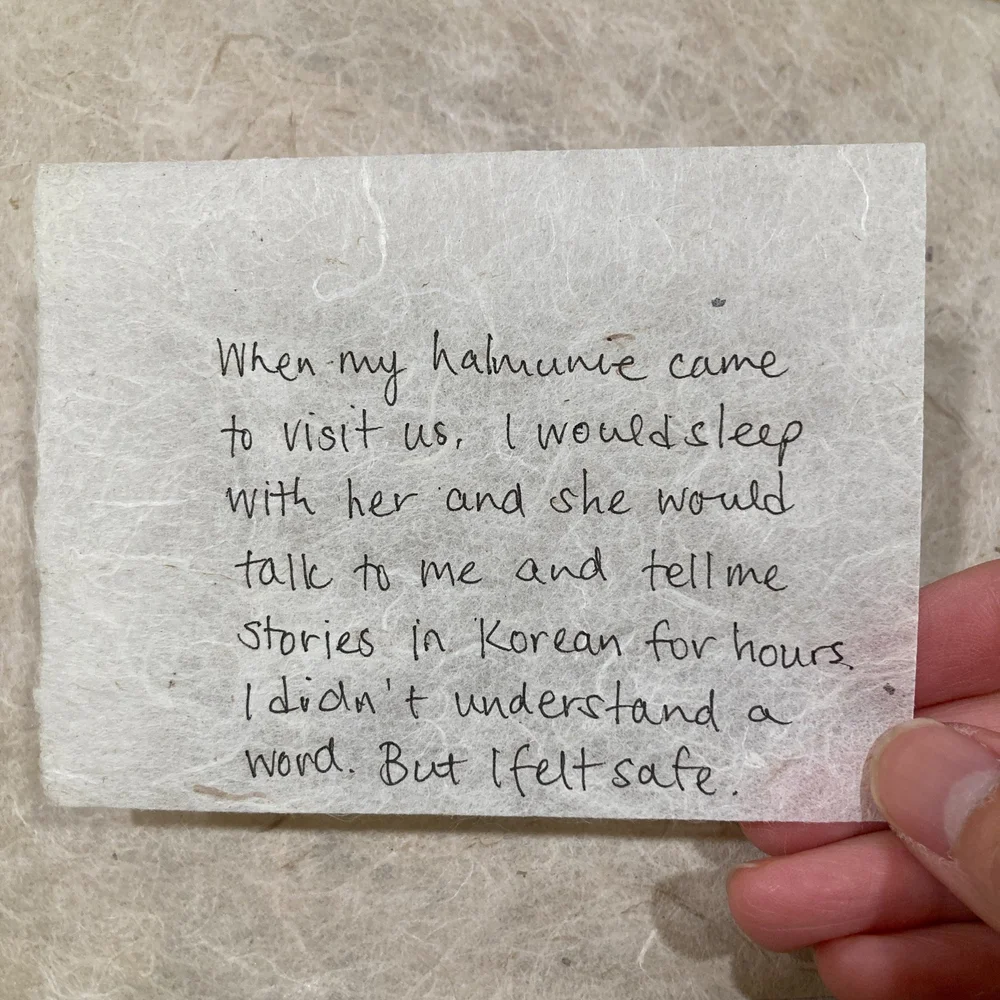 When my halmunie came
to visit us, I would sleep
with her and she would
talk to me and tell me
stories in Korean for hours.
I didn't understand a
word. But I felt safe.